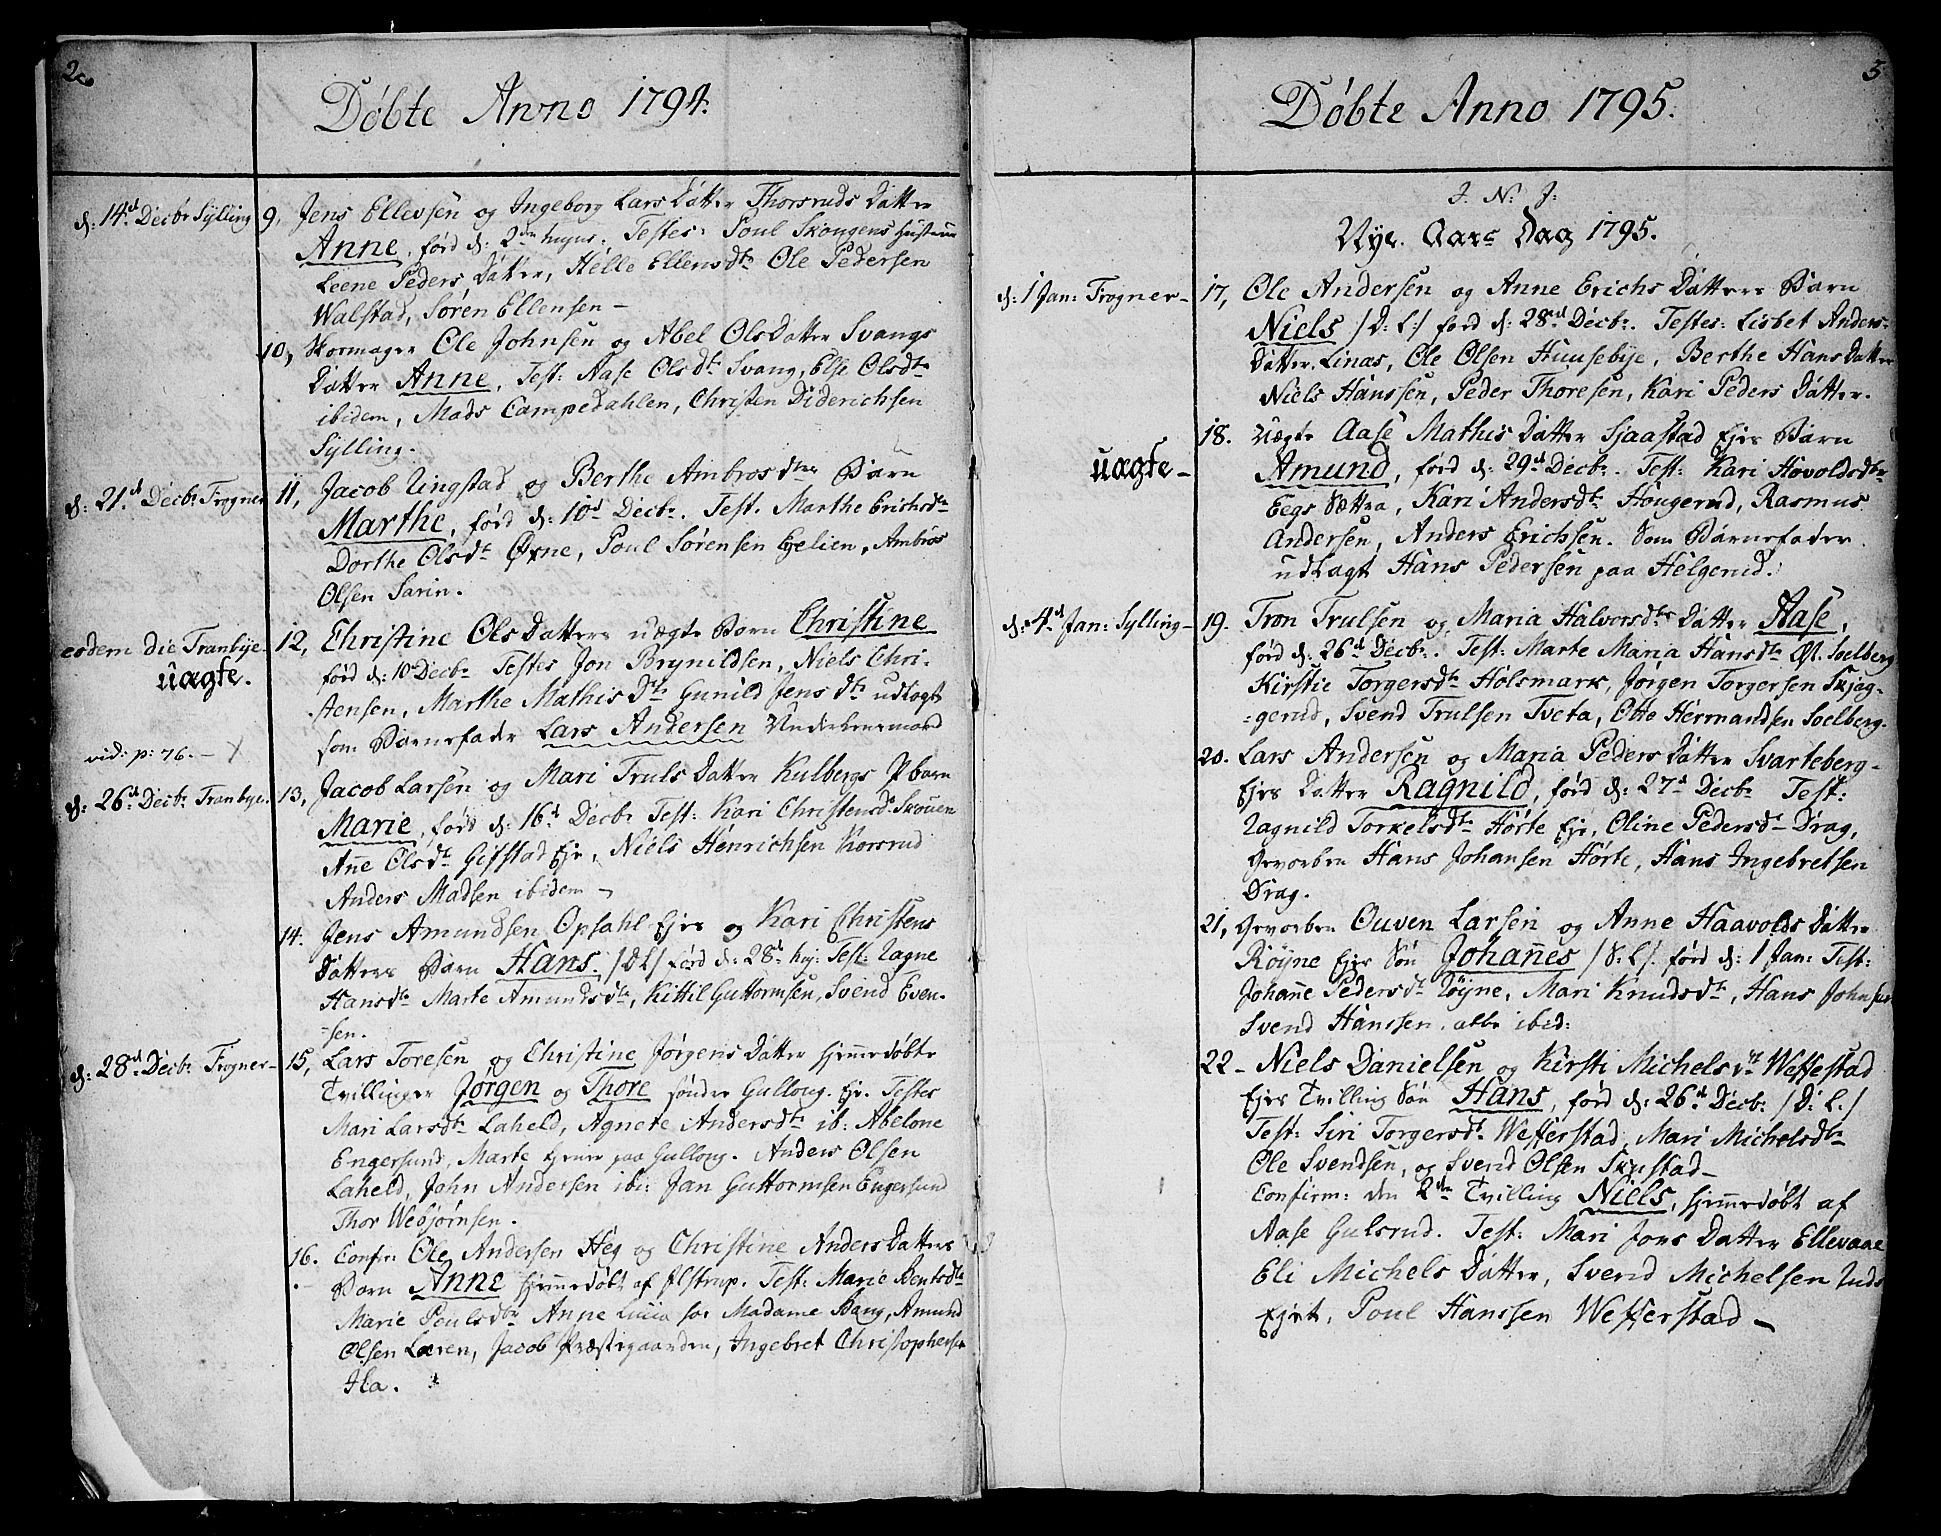 2
Døbte Anno 1794.
d: 14d Decbr Sylling 9, Jens Ellevsen og Ingeborg Lars Datter Thorsruds Datter
Anne, förd d: 2den hujus. Testes: Poul Skougens Hustrue
Leene Peders Datter, Helle Ellensdtr Ole Pedersen
Walstad, Søren Ellensen –
10, Skomager Ole Johnsen og Abel Ols Datter Svangs
Datter Anne, Test: Aase Olsdtr Svang, Else Olsdtr
ibidem, Mads Campedahlen, Christen Diderichsen
Sylling.
d: 21d Decbr Frogner 11, Jacob Ungstad og Berthe Ambrosdtrs Barn
Marthe, förd d: 10d Decbr. Test. Marthe Erichsdtr
Dorthe Olsdtr Øxne, Poul Sørensen Egelien, Ambros
Olsen Sarin.
eodem die Tranbye. 12, Christine Ols Datters uægte Barn Christine
uægte. förd d: 10 Decbr Testes Jon Brynildsen, Niels Chri-
stensen, Marthe Mathisdtr Gunild Jensdtr udlagt
som Barnefader Lars Andersen
vid: p: 76. – X
d: 26d Decbr Tranbye. 13, Jacob Larsen og Mari Truls Datter Kulbergs Pbarn
Marie, förd d: 16d Decbr Test: Kari Christensdr Skouen
Anne Olsdtr Gifstad Eje, Niels Henrichsen Korsrud
Anders Madsen ibidem –
14. Jens Amundsen Opsahl Ejer og Kari Christens
Datters Barn Hans. /DL/ förd d: 28d huj: Test: Ragne
Hansdtr Marte Amundsdtr, Kittil Guttormsen, Svend Even-
-sen.
d: 28d Decbr Frogner – 15, Lars Toresen og Christine Jørgens Datter hjemmedøbte
Tvillinger Jørgen og Thore søndre Gulloug. Eje. Testes
Mari Larsdtr Laheld, Agnete Andersdtr ib: Abelone
Engersund, Marte tjener paa Gulloug. Anders Olsen
Laheld, John Andersen ibi: Jan Guttormsen Engersund
Thor Webjørnsen.
16. Confir: Ole Andersen Heg og Christine Anders Datters
Barn Anne hjemmedøbt af Ilstrup. Test: Marie Bentsdtr
Marie Poulsdtr Anne Lucia for Madame Bang, Amund
Olsen Løren, Jacob Præstegaarden, Ingebret Christophersen
Ila.
3
Døbte Anno 1795.
J. N. J:
Nye Aars Dag 1795.
d: 1 Jan: Frogner – 17, Ole Andersen og Anne Erichs Datters Barn
Niels /D: L:/ förd d: 28d Decbr. Testes: Lisbet Anders-
Datter Linas, Ole Olsen Huusebye, Berthe Hans Datter
Niels Hanssen, Peder Thoresen, Kari Peders Datter.
uægte – 18. Uægte Aase Mathis Datter Sjaastad Ejes Barn
Amund, förd d: 29d Decbr. Test: Kari Hovoldsdtr
Eegs Sættra, Kari Andersdtr Hougerud, Rasmus
Andersen, Anders Erichsen. Som Barnefader
udlagt Hans Pedersen paa Helgerud.
d: 4d Jan: Sylling – 19. Tron Trulsen og Maria Halvorsdtrs Datter Aase,
förd d: 26d Decbr. Test: Marte Maria Hansdtr Øst. Soelberg
Kirstie Torgersdtr Holsmark, Jørgen Torgersen Skjeg-
-gerud, Svend Trulsen Tveta, Otto Hermandsen Soelberg.
20. Lars Andersen og Maria Peders Datter Svarteberg-
Ejes Datter Ragnild, förd d: 27d Decbr Test:
Ragnild Torkelsdtr Hørte Eje, Oline Pedersdtr Drag,
Gevorben Hans Johansen Hørte, Hans Ingebretsen
Drag.
21, Gevorben Ouven Larsen og Anne Haavolds Datter
Röyne Ejes Søn Johannes /D: L/. förd d: 1 Jan: Test:
Johanne Pedersdtr Röyne, Mari Knudsdtr, Hans Johnsen
Svend Hanssen, alle ibid:
22 – Niels Danielsen og Kirsti Michelsdtr Weffestad
Ejes Tvilling Søn Hans, förd d: 26d Decbr /D: L./
Test: Siri Torgersdtr Wefferstad, Mari Michelsdtr
Ole Svendsen, og Svend Olsen Skustad –
Confirm: den 2den Tvilling Niels, hjemmedøbt af
Aase Gulsrud. Test: Mari Jons Datter Ellevaae
Eli Michels Datter, Svend Michelsen Ruds
Ejet, Poul Hanssen Wefferstad –